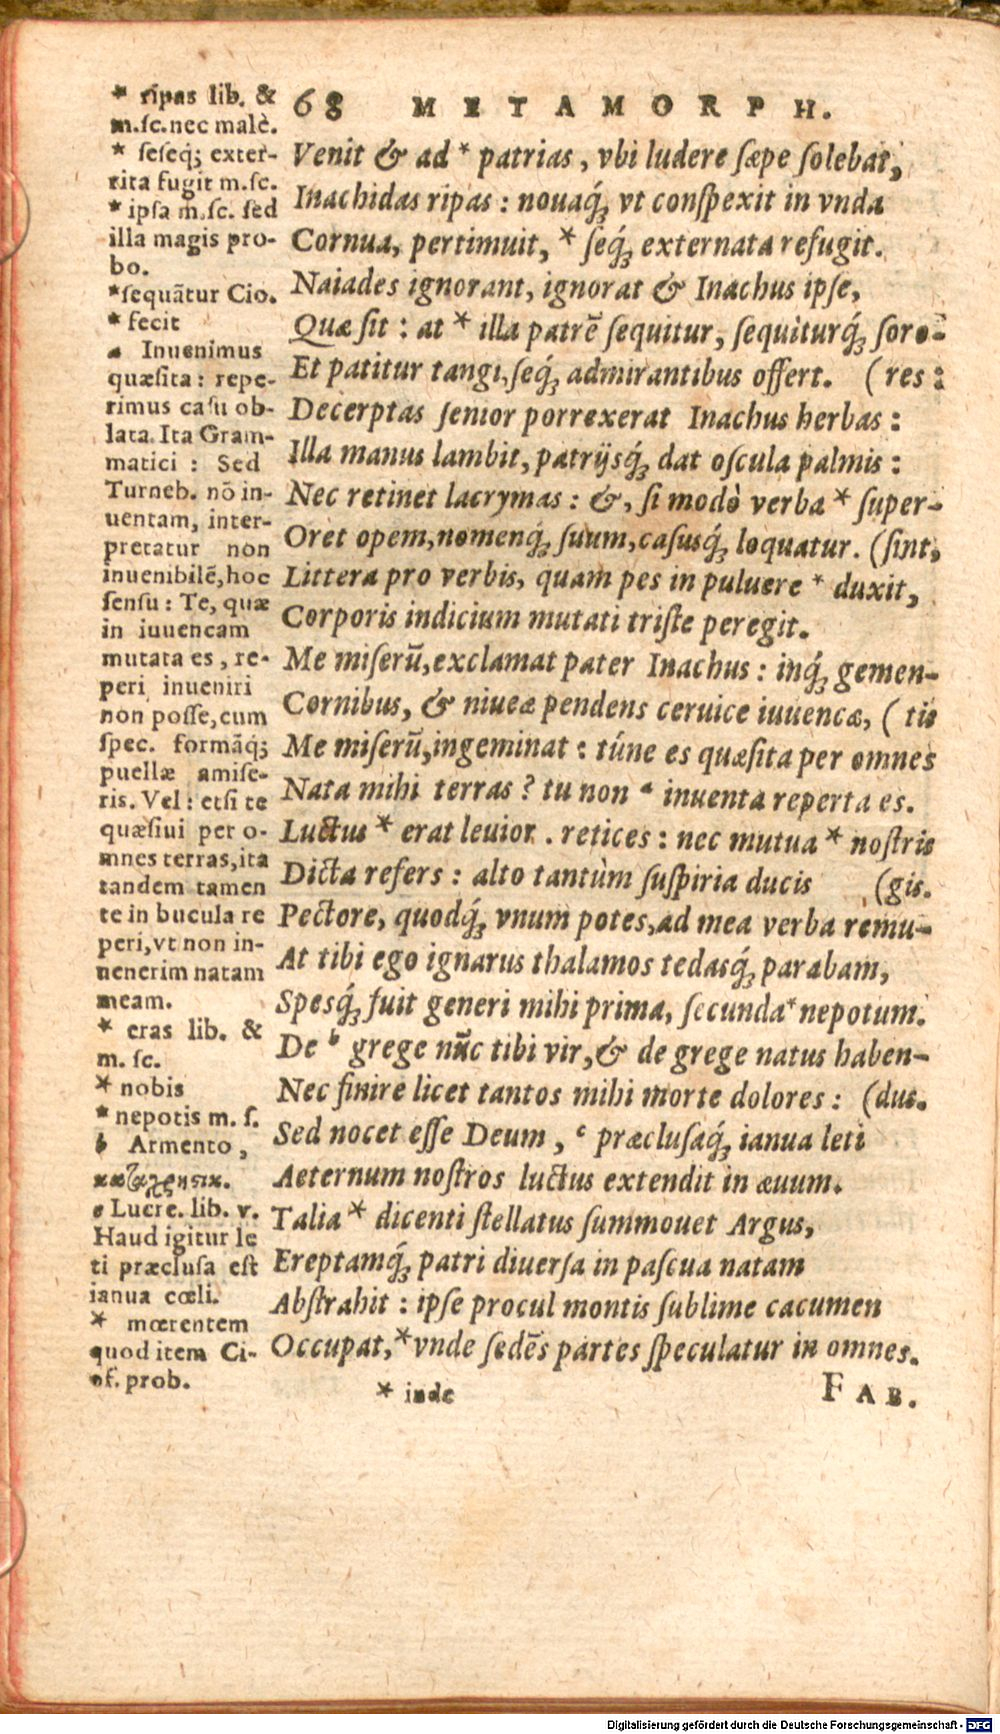 68 METAMORPH.
Venit & ad * patrias, vbi ludere sæpe solebat,
Inachidas ripas: nouaq́; vt conspexit in vnda
Cornua, pertimuit, * seq́; externata refugit.
Naiades ignorant, ignorat & Inachus ipse,
Quæ sit: at * illa patrē sequitur, sequiturq́; soro-
Et patitur tangi, seq́; admirantibus offert. (res:
Decerptas senior porrexerat Inachus herbas:
Illa manus lambit, patrijsq́; dat oscula palmis:
Nec retinet lacrymas: &, si modò verba * super-
Oret opem, nomenq́; suum, casusq́; loquatur. (sint,
Littera pro verbis, quam pes in puluere * duxit,
Corporis indicium mutati triste peregit.
Me miserũ, exclamat pater Inachus: inq́; gemen-
Cornibus, & niueæ pendens ceruice iuuencæ, (tis
Me miserũ, ingeminat: túne es quæsita per omnes
Nata mihi terras? tu non a inuenta reperta es.
Luctus * erat leuior. retices: nec mutua * nostris
Dicta refers: alto tantùm suspiria ducis (gis.
Pectore, quodq́; vnum potes, ad mea verba remu-
At tibi ego ignarus thalamos tedasq́; parabam,
Spesq́; fuit generi mihi prima, secunda * nepotum.
De b grege nũc tibi vir, & de grege natus haben-
Nec finire licet tantos mihi morte dolores: (dus.
Sed nocet esse Deum, c præclusaq́; ianua leti
Aeternum nostros luctus extendit in æuum.
Talia * dicenti stellatus summouet Argus,
Ereptamq́; patri diuersa in pascua natam
Abstrahit: ipse procul montis sublime cacumen
Occupat, * vnde sedēs partes speculatur in omnes.
* inde
FAB.
* ripas lib. &
m.sc. nec malè.
* seseq; exter-
rita fugit m.sc.
* ipsa m.sc. sed
illa magis pro-
bo.
* sequātur Cio.
* fecit
a Inuenimus
quæsita: repe-
rimus casu ob-
lata. Ita Gram-
matici: Sed
Turneb. nō in-
uentam, inter-
pretatur non
inuenibilē, hoc
sensu: Te, quæ
in iuuencam
mutata es, re-
peri inueniri
non posse, cum
spec. formāq;
puellæ amise-
ris. Vel: etsi te
quæsiui per o-
mnes terras, ita
tandem tamen
te in bucula re
peri, vt non in-
uenerim natam
meam.
* eras lib. &
m. sc.
* nobis
* nepotis m. s.
b Armento,
c Lucre. lib. v.
Haud igitur le
ti præclusa est
ianua cœli.
* mœrentem
quod item Ci-
of. prob.
Digitalisierung gefördert durch die Deutsche Forschungsgemeinschaft - DFG